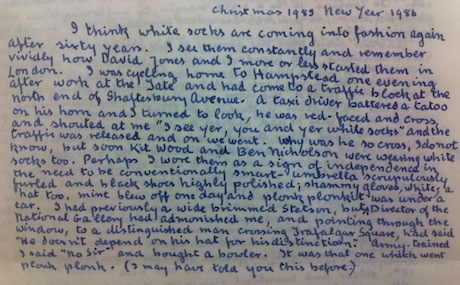 Christmas 1985 New Year 1986
I think white socks are coming into fashion again
after sixty years. I see them constantly and remember
vividly how David Jones and I more or less started them in
London. I was cycling home to Hampstead one evening
after work at the Tate and had come to a traffic block at the
north end of Shaftesbury Avenue. A taxi driver battered a tatoo
on his horn and I turned to look, he was red-faced and cross,
and shouted at me "I see yer, you and yer while socks" and the
traffic was released and on we went. Why was he so cross, I do not
know, but soon Kit Wood and Ben Nicholson were wearing while
socks too. Perhaps I wore them as a sign of independence in
the need to be conventionally smart - umbrella scrupulously
furled and black shoes highly polished; shammy gloves, white; a
hat too, mine blew off one day and plonk plonkit was under a
car. I had previously a wide brimmed Stetson, but Director of the
National Gallery had admonished me, and pointing through the
window, to a distinguished man crossing Trafalgar Square, had said
"He doesn't depend on his hat for his distinction." Army-trained
I said "No Sir" and bought a bowler. It was that one which went
plonk plonk. (I may have told you this before.)